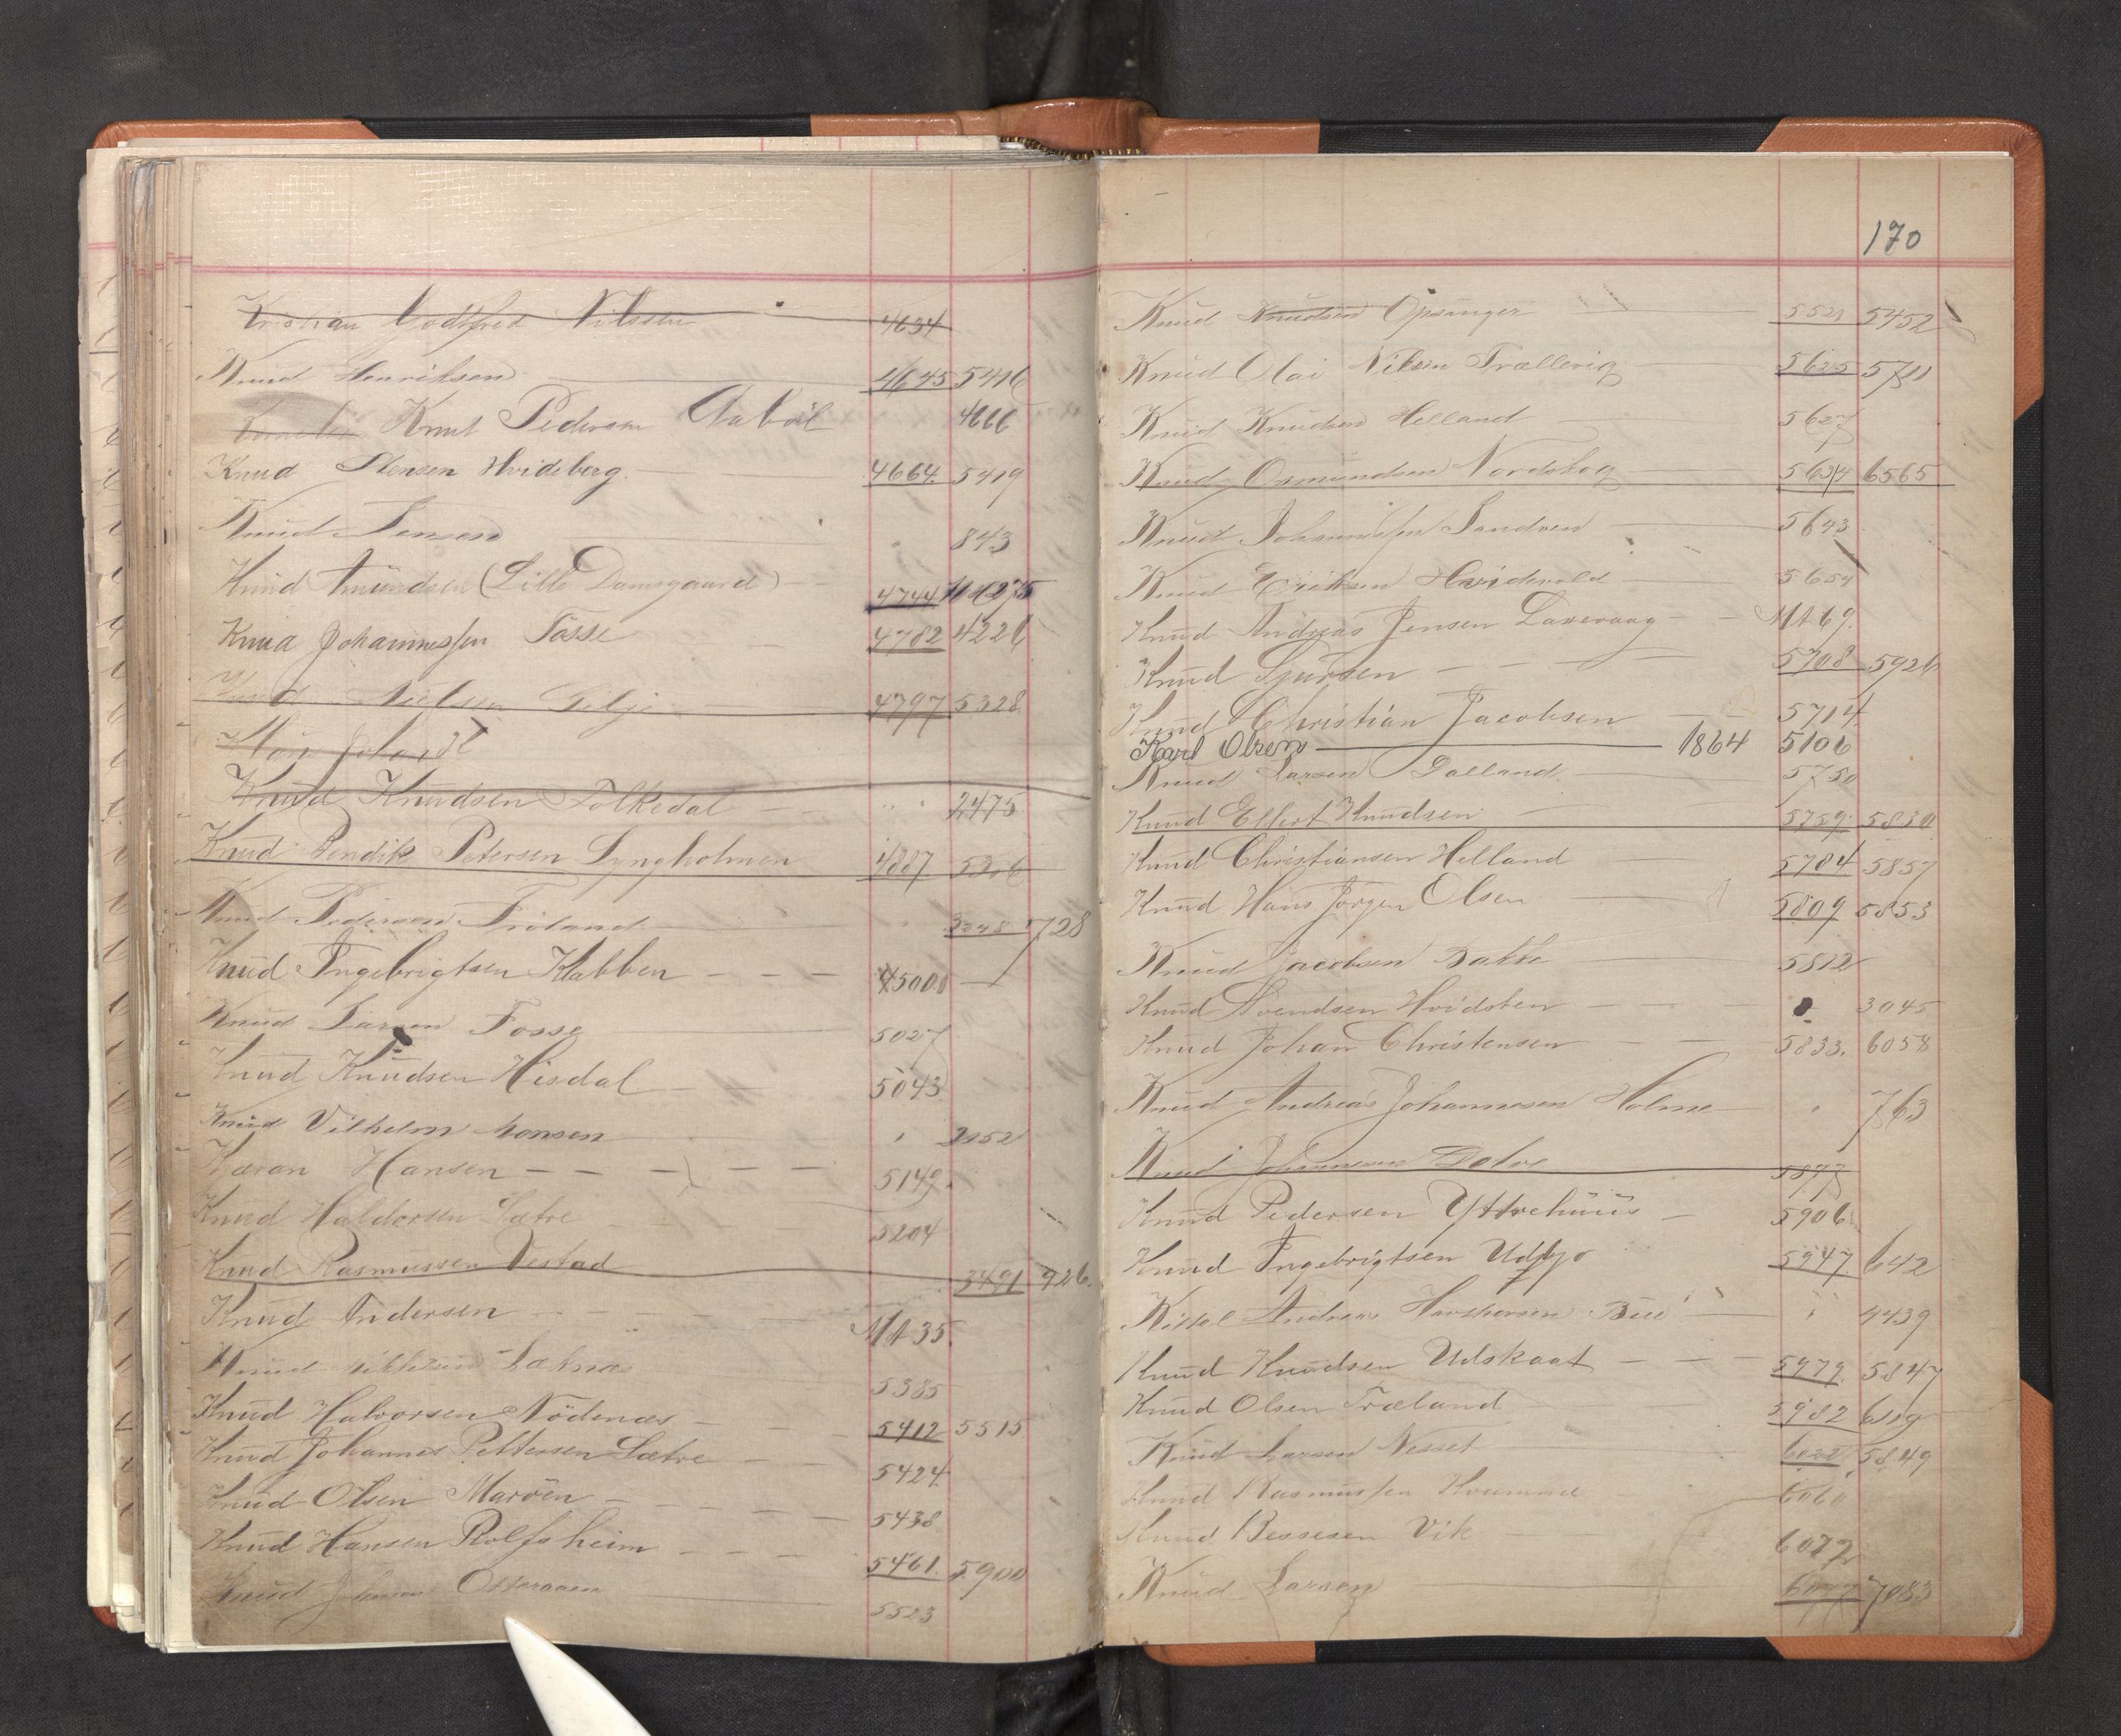 Kristian Godtfred Nilssen 4634
Knud Henriksen 4645 5416
Knut Pedersen Aabøl 4666
Knud Stensen Hvideberg 4664 5419
Knud Jensen " 843
Knud Amundsen (Lille Damsgaard) 4744
Knud Johannessen Fosse 4782 4226
Knud Nielsen Gilje 4797 5328
Knud Knudsen Folkedal " " 2475
Knud Bendik Petersen Lyngholmen 4887 5306
Knud Pedersen Froland " 3248 5728
Knud Ingebrigtsen Klabben 4500
Knud Larsen Fosse 5027
Knud Knudsen Hisdal 5043
Knud Vilhelm Monsen " 2152
Karan Hansen 5149
Knud Haldorsen Sætre 5204
Knud Rasmussen Vestad 3491 926
Knud Andersen MA 35
Knud 5385
Knud Halvorsen Nödenæs 5412 5515
Knud Johannes Pettersen Sætre 5424
Knud Olsen Maröen 5438
Knud Hansen Rolfsheim 5461 5900
Knud Otteraaen 5523
170
Knud Knudsen Opsanger 5521 5452
Knud Olai Nilsen Trællevig 5625 5711
Knud Knudsen Helland 5627
Knud Osmundsen Nordskog 5634 6565
Knud Johannessen Sandven 5643
Knud Eriksen Hvidevold 5654
Knud Andreas Jensen Laxevaag MA 69.
Knud Sjursen 5708 5926
Knud Christian Jacobsen 5714
Karl Olsen 1864 5106
Knud Larsen Dalland 5750
Knud Ellert Knudsen 5759 5830
Knud Christiansen Helland 5784 5857
Knud Hans Jörgen Olsen 5809 5853
Knud Jacobsen Bakke 5812
Knud Svendsen Hvidsten 3045
Knud Johan Christensen 5833. 6058
Knud Andreas Johannesen Holme " 763
Knud Johannesen Dolve 5877
Knud Pedersen Yttrehüüs 5906
Knud Ingebrigtsen Udsjo 5947 642
Kittel Andreas Bue " 4439
Knud Knudsen Udskaat 5979 5847
Knud Olsen Træland 5982 6119
Knud Larsen Nesset 6022 5849
Knud Rasmussen Kvamme 6060
Knud Bessesen Vik 6072
Knud Larsen 6077 7083